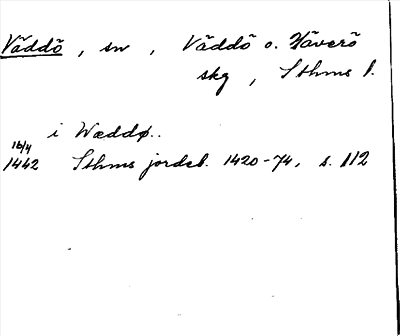 Väddö, sn, Väddö o. Häverö
skg, Sthms l.
i Wæddø..
16/4
1442 Sthms jordeb. 1420-74, s. 112